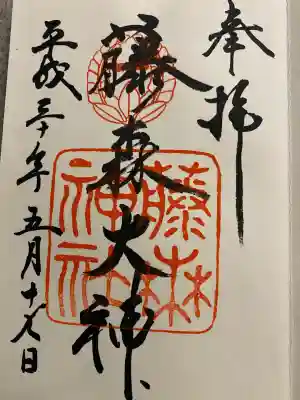 奉拝
藤森大神
藤森神社
平成三十年五月十七日